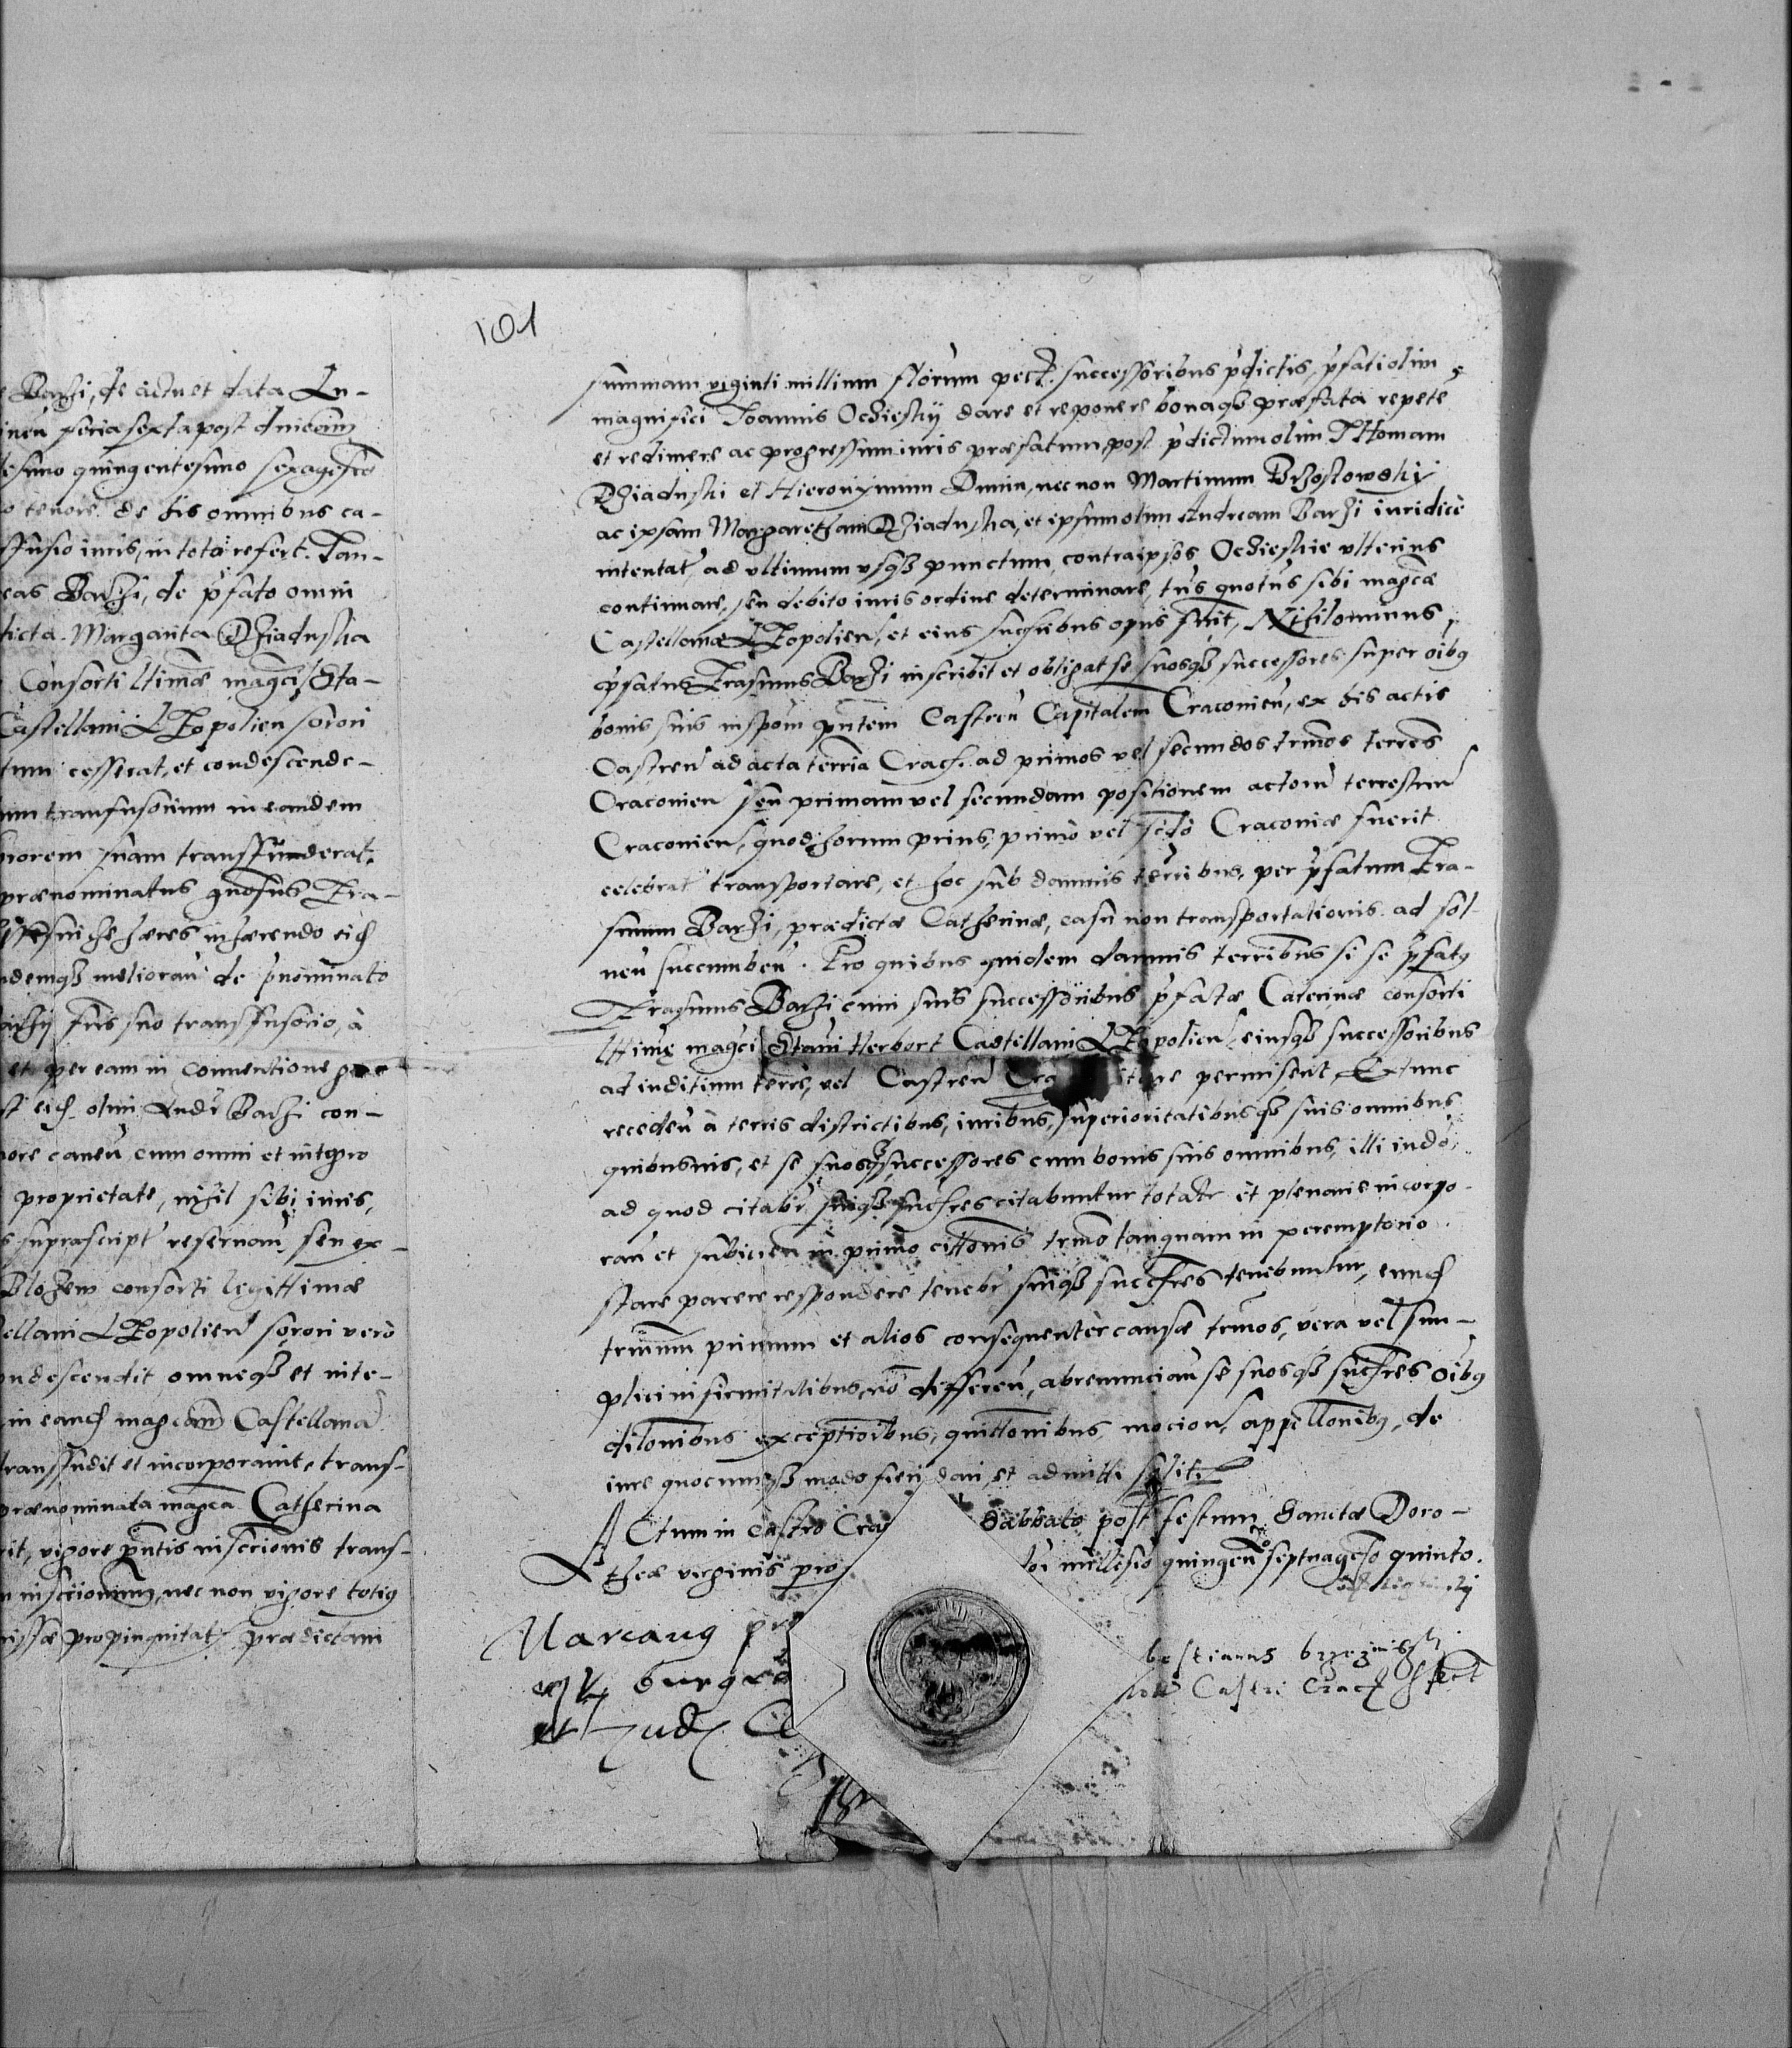 Barzi, de actu et data Lu-
feria sexta post dnicam
quingentesimo sexagesio
tenore de his omnibus ca-
iuris, in toto refert. Tan-
Barzi, de pfato omni
dicta Margarita Dziaduska
Consorti ltimæ magci Sta-
Castellani Leopolien sorori
cesserat, et condescende-
transfusorium in eandem
sororem suam transffunderat,
prænominatus quosus Era-
hæres inhærendo
melioran de pnominato
suo transffusorio, à
et per eam in conventione
olim Andr Barzi con-
cauen cum omni et integro
proprietate, nihil sibi iuris,
suprascript reseruan seu ex-
Blozew consorti legittimæ
Castellani Leopolien sorori vero
condescendit omneqз et inte-
in eand magcam Castellana
transfudit et incorporauit, trans-
prænominata magca Catherina
vigore pntis inscrionis trans-
inscrionum, nec non vigore totiq
propinquitat prædictam
101
summam viginti millium florum pect. successoribus pdictis, pfati olim
magnifici Joannis Ocziesky dare et reponere bonaqз præfata repete
et redimere ac progressum iuris præfatum post pdictum olim THomam
Dziaduski et Hieronymum Dunin, nec non Martinum Brzostowsky
ac ipsam Margaretham Dziaduska, et ipsum olim Andream Barzi iuridicè
intentat, ad vltimum vsqз punctum, contra ipsos Ocziestie vlterius
continuare, seu debito iuris ordine determinare, tus quotus sibi magcæ
Castellanæ Leopolien, et eius succribus opus fuit, Nihilominus
pfatus Erasmus Barzi inscribit et obligat se suosqз successores super oibq
bonis suis inspom pntem Castren Capitalem Cracouien, ex his actis
Castren ad acta terria Crach. ad primos vel secundos trmos terres
Cracouien seu primam vel secundam positionem actoru terrestriu
Cracouien, quod horum prius, primò vel scdo Cracoviæ fuerit
celebrat transportare, et hoc sub damnis terribus, per pfatum Era-
smum Barzi, prædictæ Catherinæ, casu non transportationis ad sol-
uen succumben. Pro quibus quidem damnis terribus si se pfatq
Erasmus Barzi cum suis successoribus pfatæ Caterinæ consorti
lttimę magci Stani Herbort Castellani Leopolien eiusqз successoribus
ad inditium terre, vel Castren Cra permiserit, Extunc
receden à terris districtibus, iuribus, superioritatibusqз suis omnibus
quibusuis, et se suosqз successores cum bonis suis omnibus, illi iudo,
ad quod citabr, suiqз succres citabuntur totatr et plenarie incorpo-
ran et subicien in primo cittonis trmo tanquam in peremptorio
stare parere respondere tenebr suiqз succres tenebuntur, eund
trminum primum et alios consequenter causæ trmos, vera vel sim-
plici infirmitatibus, no differen, abrenuncian se suosqз succres oibq
dilonibus exceptioibus, quittonibus, mocion, appellonibq, de
iure quocumqз modo fieri dari, et admitti solit
ACtum in Castro Cra Sabbato post festum Sanctæ Doro-
theæ virginis pro millesio quingen septuagesio quinto.
Marcaus
burgra bestianus brzezinisky
et Judx Castri Crach